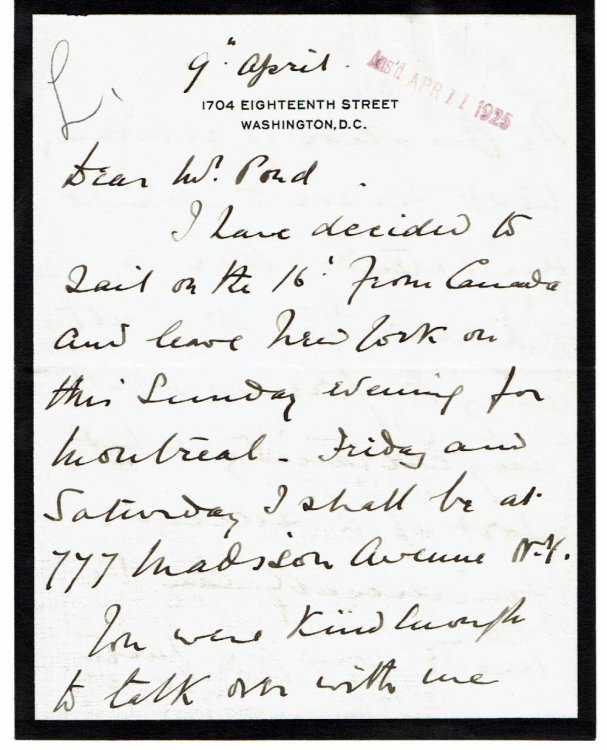 L.
9th April.
Ans'd APR 11 1925
1704 EIGHTEENTH STREET
WASHINGTON, D.C.
Dear Mr. Pond.
I have decided to
sail on the 16th from Canada
and leave New York on
this Sunday evening for
Montreal - Friday and
Saturday I shall be at
777 Madison Avenue N.Y.
You were kind enough
to talk over with me